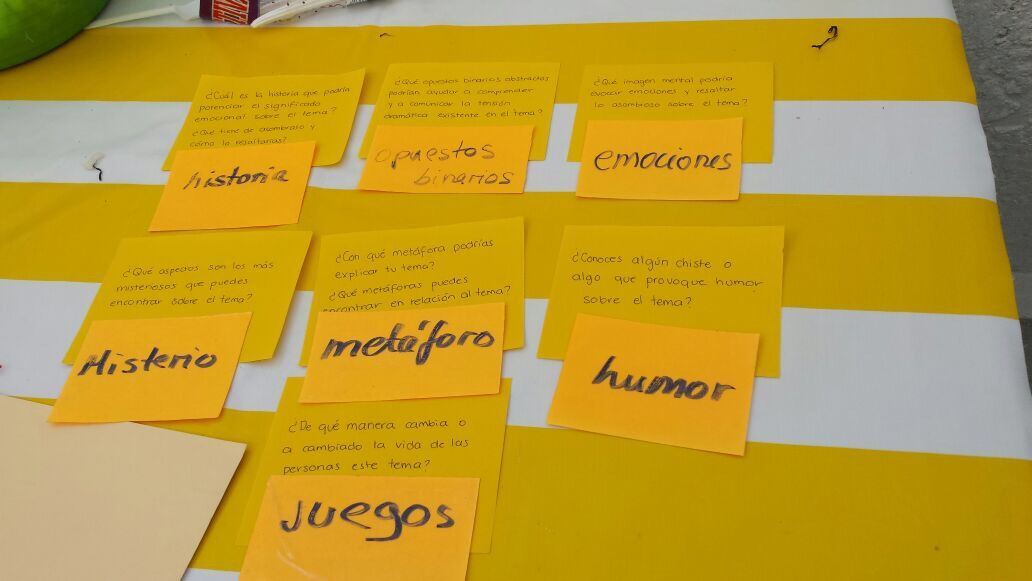 ¿Cuál es la historia que podría
potenciar el significado
emocional sobre el tema?
¿Qué tiene de asombroso y
cómo la resaltarías?
historia
¿Qué opuestos binarios abstractos
podrían ayudar a comprender
y a comunicar la tensión
dramática existente en el tema?
opuestos
binarios
¿Qué imagen mental podría
evocar emociones y resaltar
lo asombroso sobre el tema?
emociones
¿Qué aspectos son los más
misteriosos que puedes
encontrar sobre el tema?
Misterio
¿Con qué metáfora podrías
explicar tu tema?
¿Qué metáforas puedes
encontrar en relación al tema?
metáforo
¿Conoces algún chiste o
algo que provoque humor
sobre el tema?
humor
¿De qué manera cambia o
a cambiado la vida de las
personas este tema?
Juegos